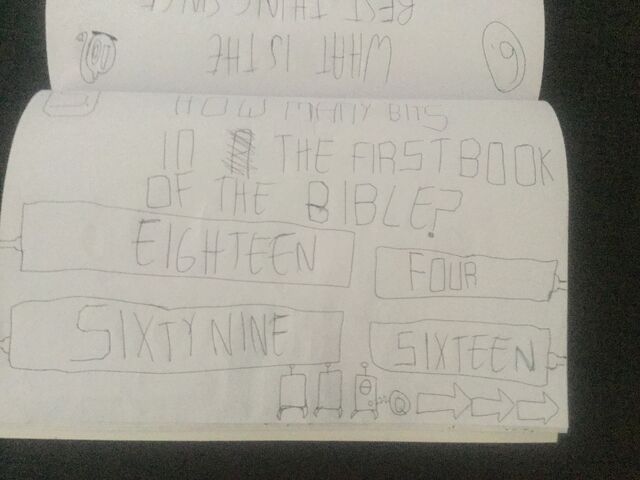 WHAT IS THE
BEST THING SINCE
HOW MANY BITS
IN THE FIRST BOOK
OF THE BIBLE?
EIGHTEEN
FOUR
SIXTY NINE
SIXTEEN
Q